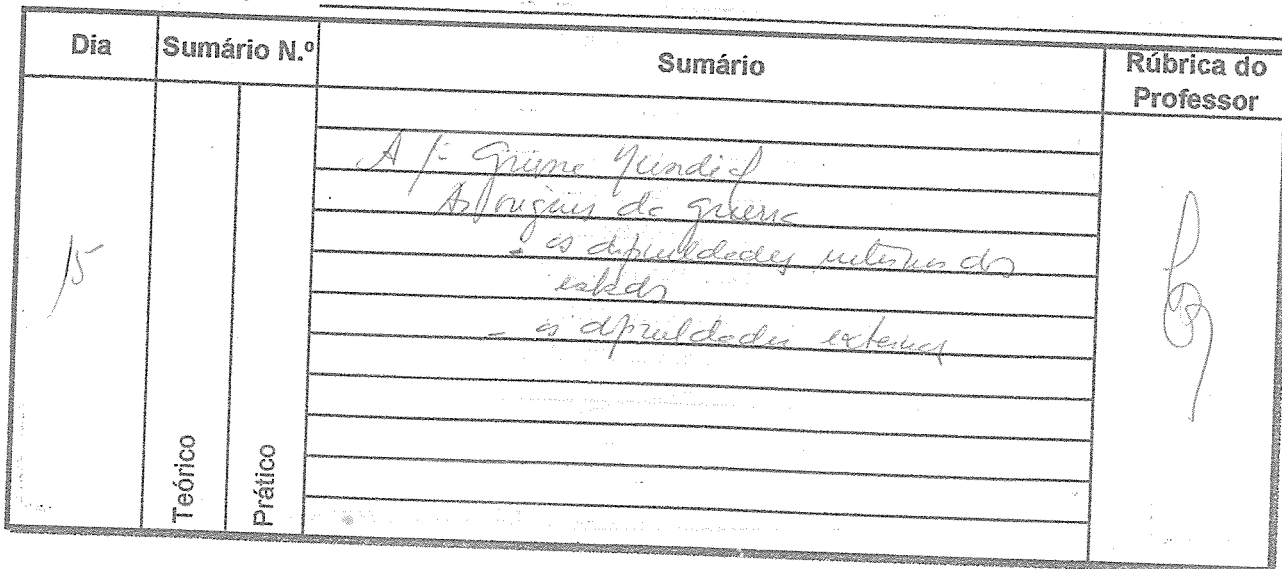 Dia Sumário N.º Sumário Rúbrica do Professor
Teórico Prático
15
A 1ª Guerra Mundial
As origens da guerra
- as dificuldades internas dos
estados
- as dificuldades externas